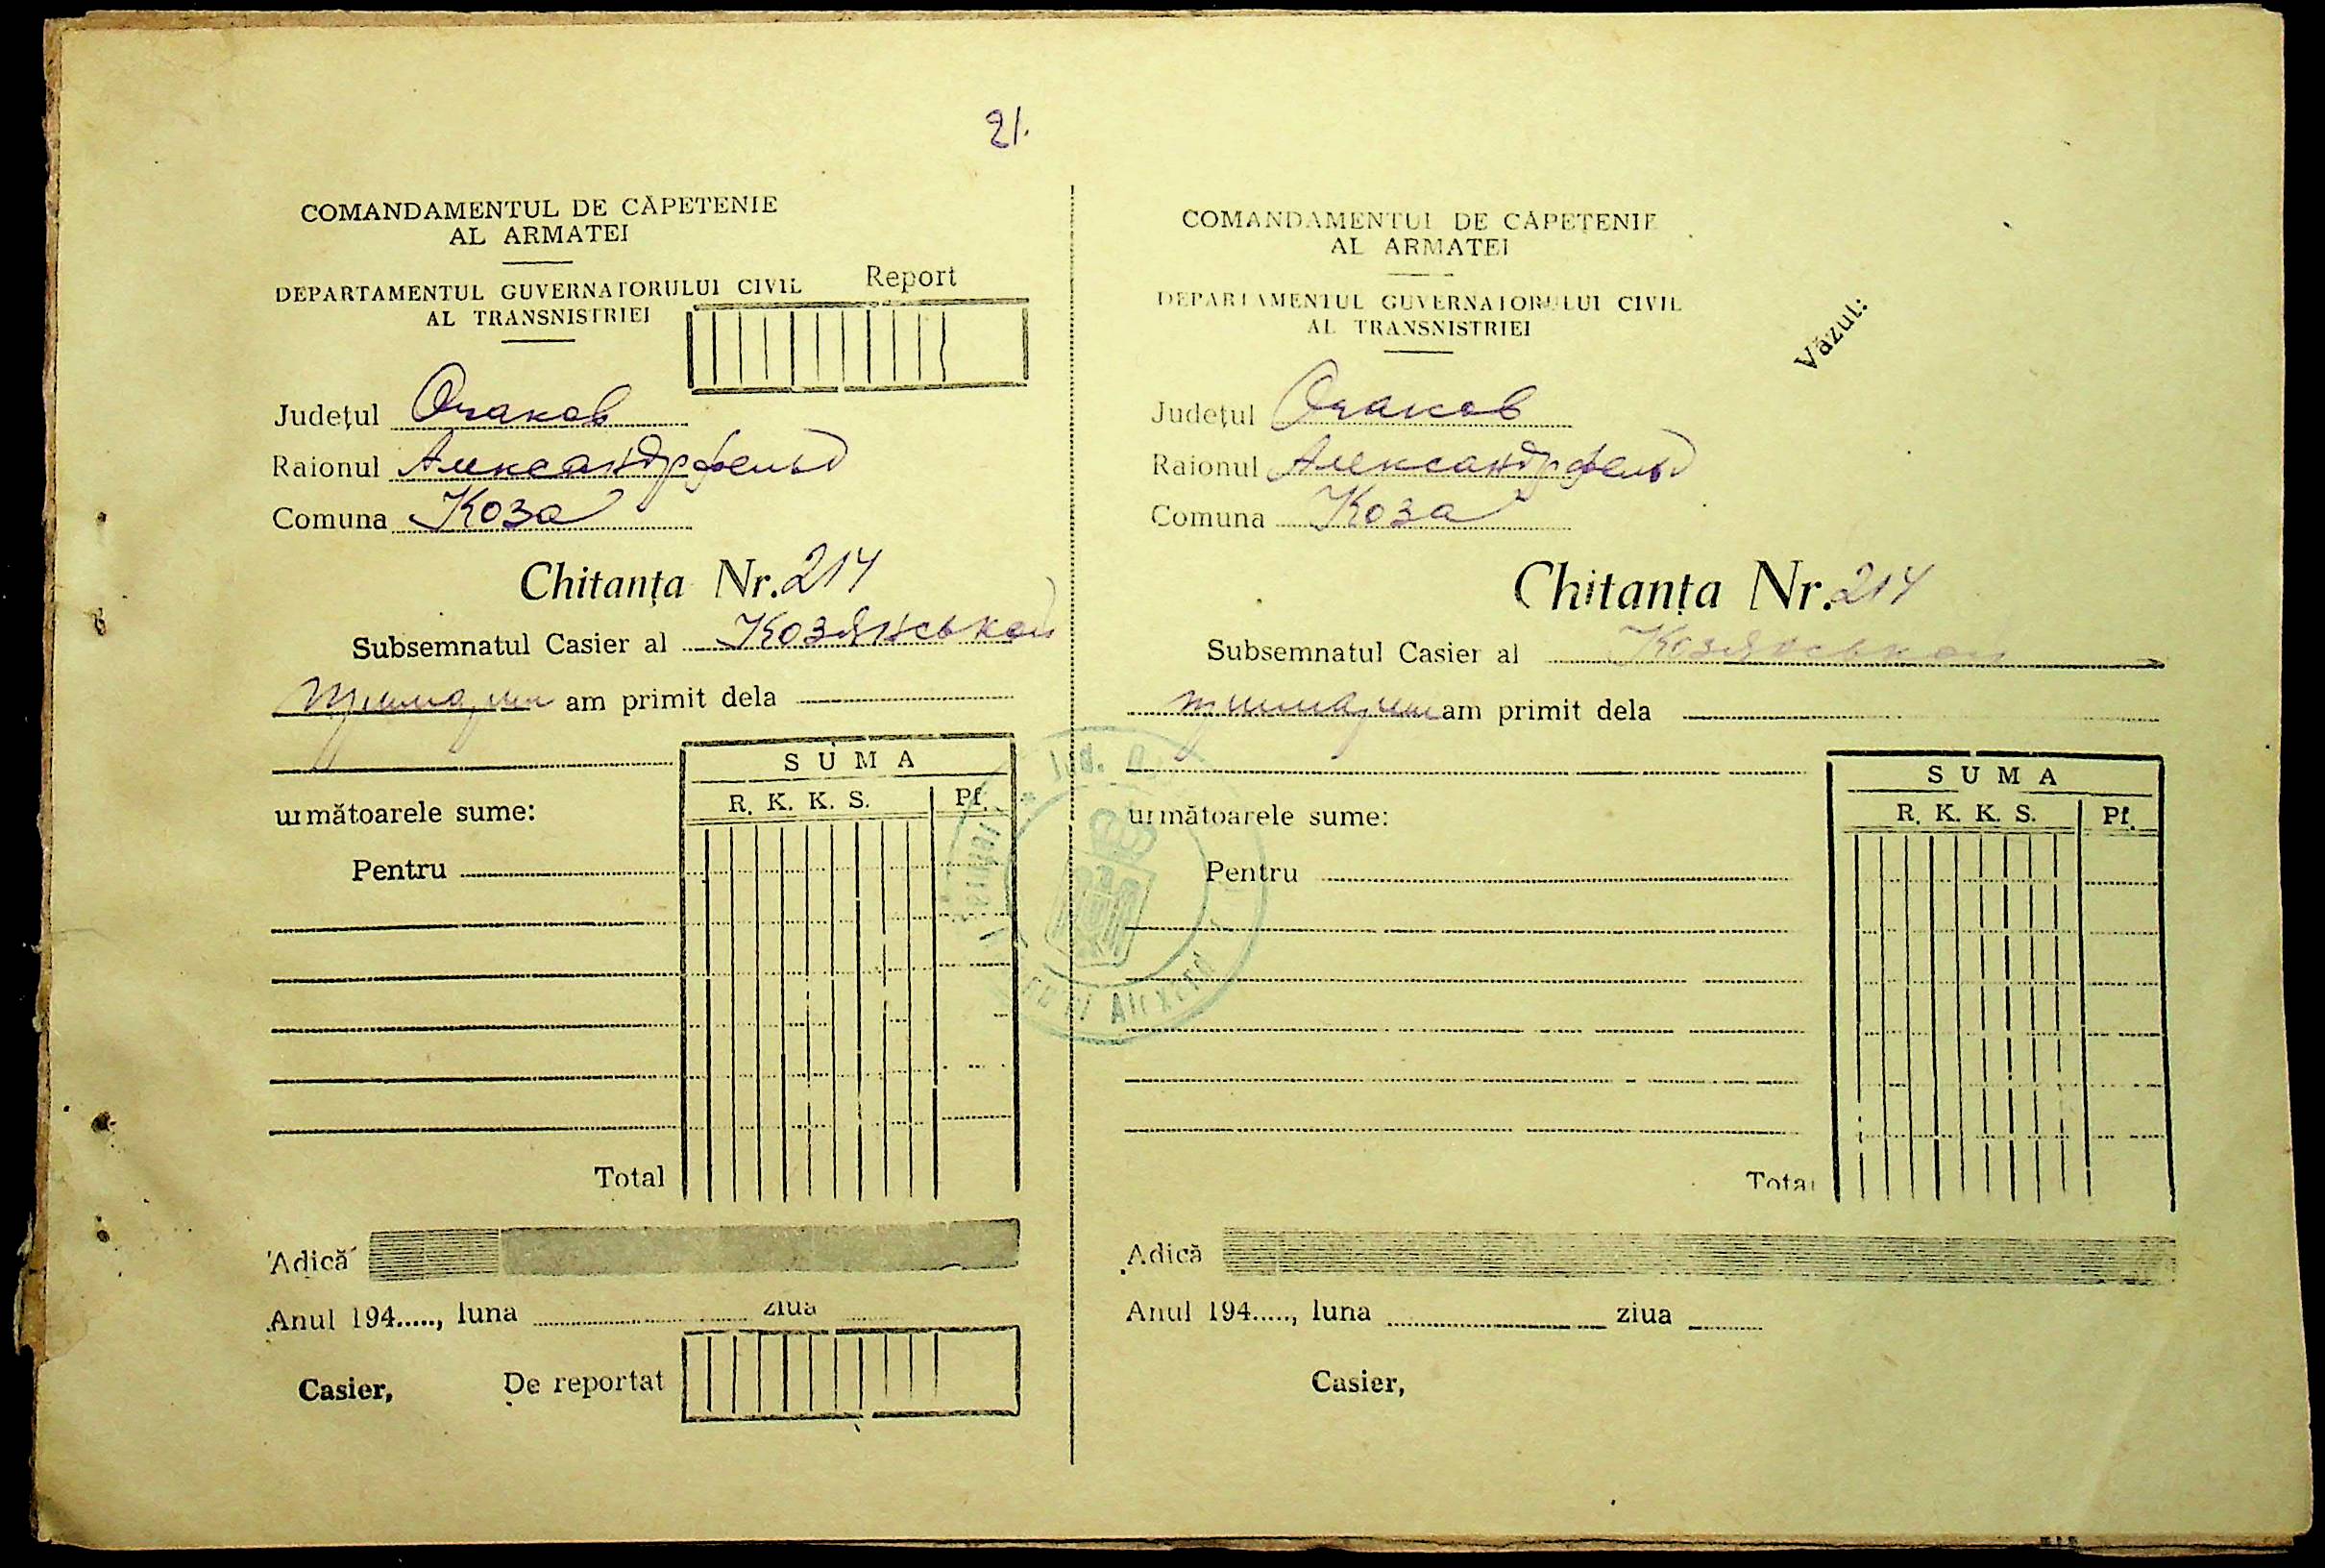 21.
COMANDAMENTUL DE CĂPETENIE
AL ARMATEI
DEPARTAMENTUL GUVERNATORULUI CIVIL
AL TRANSNISTRIEI
Report
Județul Очаков
Raionul Александрфельд
Comuna Коза
Chitanța Nr. 214
Subsemnatul Casier al Козянськой
примарии am primit dela
SUMA
R. K. K. S. Pf.
următoarele sume:
Pentru
Total
Adică
Anul 194....., luna ziua
Casier, De reportat
COMANDAMENTUL DE CĂPETENIE
AL ARMATEI
DEPARTAMENTUL GUVERNATORULUI CIVIL
AL TRANSNISTRIEI
Văzut:
Județul Очаков
Raionul Александрфельд
Comuna Коза
Chitanța Nr. 214
Subsemnatul Casier al Козянськой
примарии am primit dela
SUMA
R. K. K. S. Pf.
următoarele sume:
Pentru
Total
Adică
Anul 194....., luna ziua
Casier,
Jud.